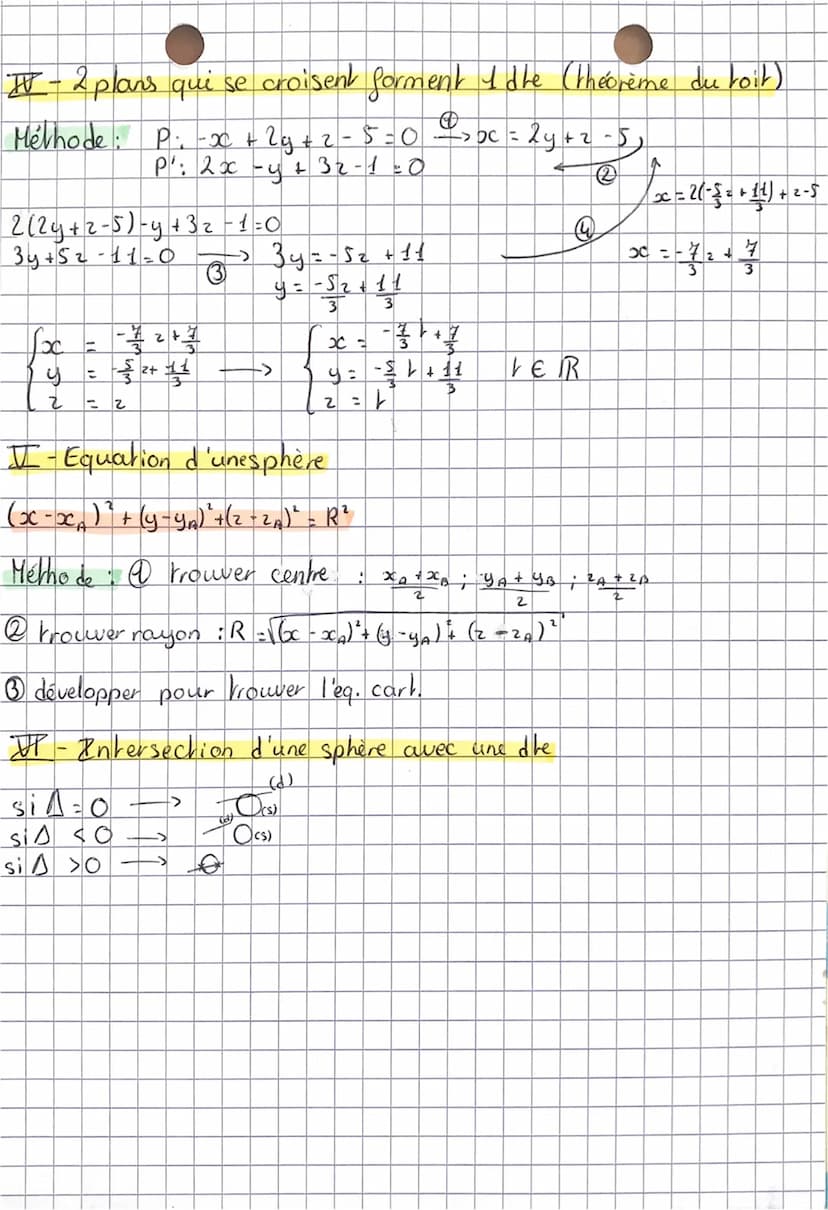 IV - 2 plans qui se croisent forment 1 dte (théorème du toit)
Méthode : P: -x + 2y + z - 5 = 0 ① → x = 2y + z - 5
P': 2x - y + 3z - 1 = 0 ②
x = 2(-5/3 z + 11/3) + z - 5
2(2y + z - 5) - y + 3z - 1 = 0 ④
3y + 5z - 11 = 0 ③ → 3y = -5z + 11 x = -7/3 z + 7/3
y = -5z/3 + 11/3
{ x = -7/3 z + 7/3 → { x = -7/3 t + 7/3
y = -5/3 z + 11/3 y = -5/3 t + 11/3 t ∈ ℝ
z = z z = t
V - Equation d'une sphère
(x - x_A)² + (y - y_A)² + (z - z_A)² = R²
Méthode : ① trouver centre : x_A + x_B / 2 ; y_A + y_B / 2 ; z_A + z_B / 2
② trouver rayon : R = √(x - x_A)² + (y - y_A)² + (z - z_A)²
③ développer pour trouver l'eq. cart.
VI - Intersection d'une sphère avec une dte
(d)
si Δ = 0 → (s)
si Δ < 0 → (d) (s)
si Δ > 0 →